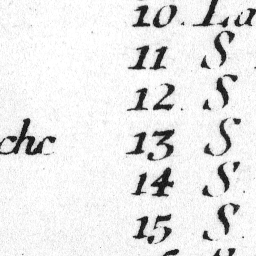 10. La
11 S
12. S
che 13 S
14 S.
15 S.